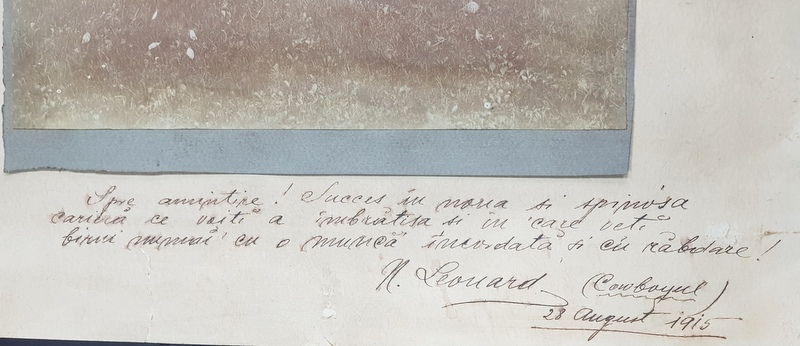 Spre amintire! Succes în noua si spinósa
carieră ce voiti a îmbrătisa si în care veti
birui numai cu o muncă încordată si cu răbdare!
N. Leonard (Cowboyul)
28 August 1915